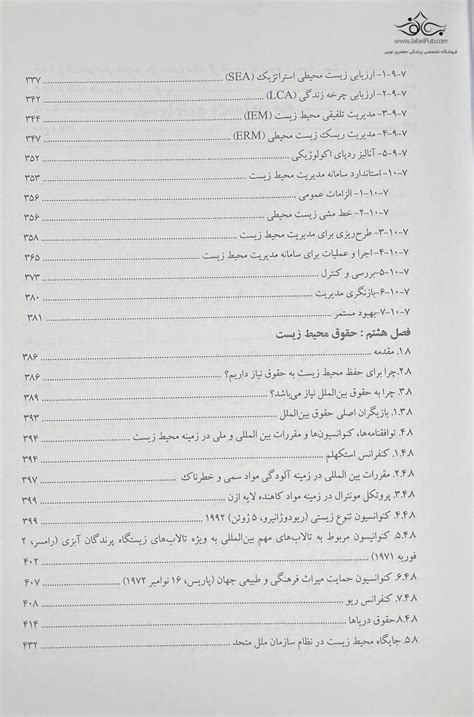 www.JafariPub.com
فروشگاه تخصصی پزشکی جعفری نوین
۷-۹-۱- ارزیابی زیست محیطی استراتژیک (SEA) ۳۳۷
۷-۹-۲- ارزیابی چرخه زندگی (LCA) ۳۴۲
۷-۹-۳- مدیریت تلفیقی محیط زیست (IEM) ۳۴۴
۷-۹-۴- مدیریت ریسک زیست محیطی (ERM) ۳۴۷
۷-۹-۵- آنالیز ردپای اکولوژیکی ۳۵۲
۷-۱۰- استاندارد سامانه مدیریت محیط زیست ۳۵۳
۷-۱۰-۱- الزامات عمومی ۳۵۶
۷-۱۰-۲- خط مشی زیست محیطی ۳۵۶
۷-۱۰-۳- طرح‌ریزی برای مدیریت محیط زیست ۳۵۸
۷-۱۰-۴- اجرا و عملیات برای سامانه مدیریت محیط زیست ۳۶۵
۷-۱۰-۵-بررسی و کنترل ۳۷۳
۷-۱۰-۶-بازنگری مدیریت ۳۸۰
۷-۱۰-۷-بهبود مستمر ۳۸۱
فصل هشتم : حقوق محیط زیست
۱.۸. مقدمه ۳۸۶
۲.۸.چرا برای حفظ محیط زیست به حقوق نیاز داریم؟ ۳۸۶
۳.۸. چرا به حقوق بین‌الملل نیاز می‌باشد؟ ۳۸۹
۱.۳.۸. بازیگران اصلی حقوق بین‌الملل ۳۹۳
۴.۸. توافقنامه‌ها، کنوانسیون‌ها و مقررات بین المللی و ملی در زمینه محیط زیست ۳۹۴
۱.۴.۸. کنفرانس استکهلم ۳۹۴
۲.۴.۸. مقررات بین المللی در زمینه آلودگی مواد سمی و خطرناک ۳۹۷
۳.۴.۸. پروتکل مونترال در زمینه مواد کاهنده لایه ازن ۳۹۹
۴.۴.۸. کنوانسیون تنوع زیستی (ریودوژانیرو، ۵ ژوئن) ۱۹۹۲ ۳۹۹
۵.۴.۸. کنوانسیون مربوط به تالاب‌های مهم بین‌المللی به ویژه تالاب‌های زیستگاه پرندگان آبزی (رامسر، ۲
فوریه ۱۹۷۱) ۴۰۲
۶.۴.۸. کنوانسیون حمایت میراث فرهنگی و طبیعی جهان (پاریس، ۱۶ نوامبر ۱۹۷۲) ۴۰۷
۷.۴.۸. کنفرانس ریو ۴۰۸
۸.۴.۸.حقوق دریاها ۴۱۴
۵.۸. جایگاه محیط زیست در نظام سازمان ملل متحد ۴۳۲